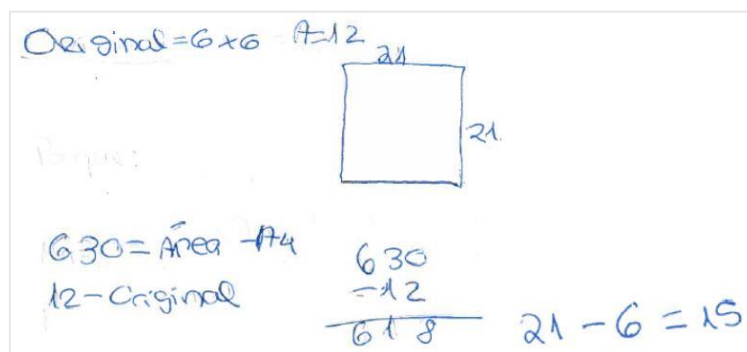 Original=6x6 A=12
21
21.
Porque:
630=Área -A4
12-Original
630
-12
618
21-6=15